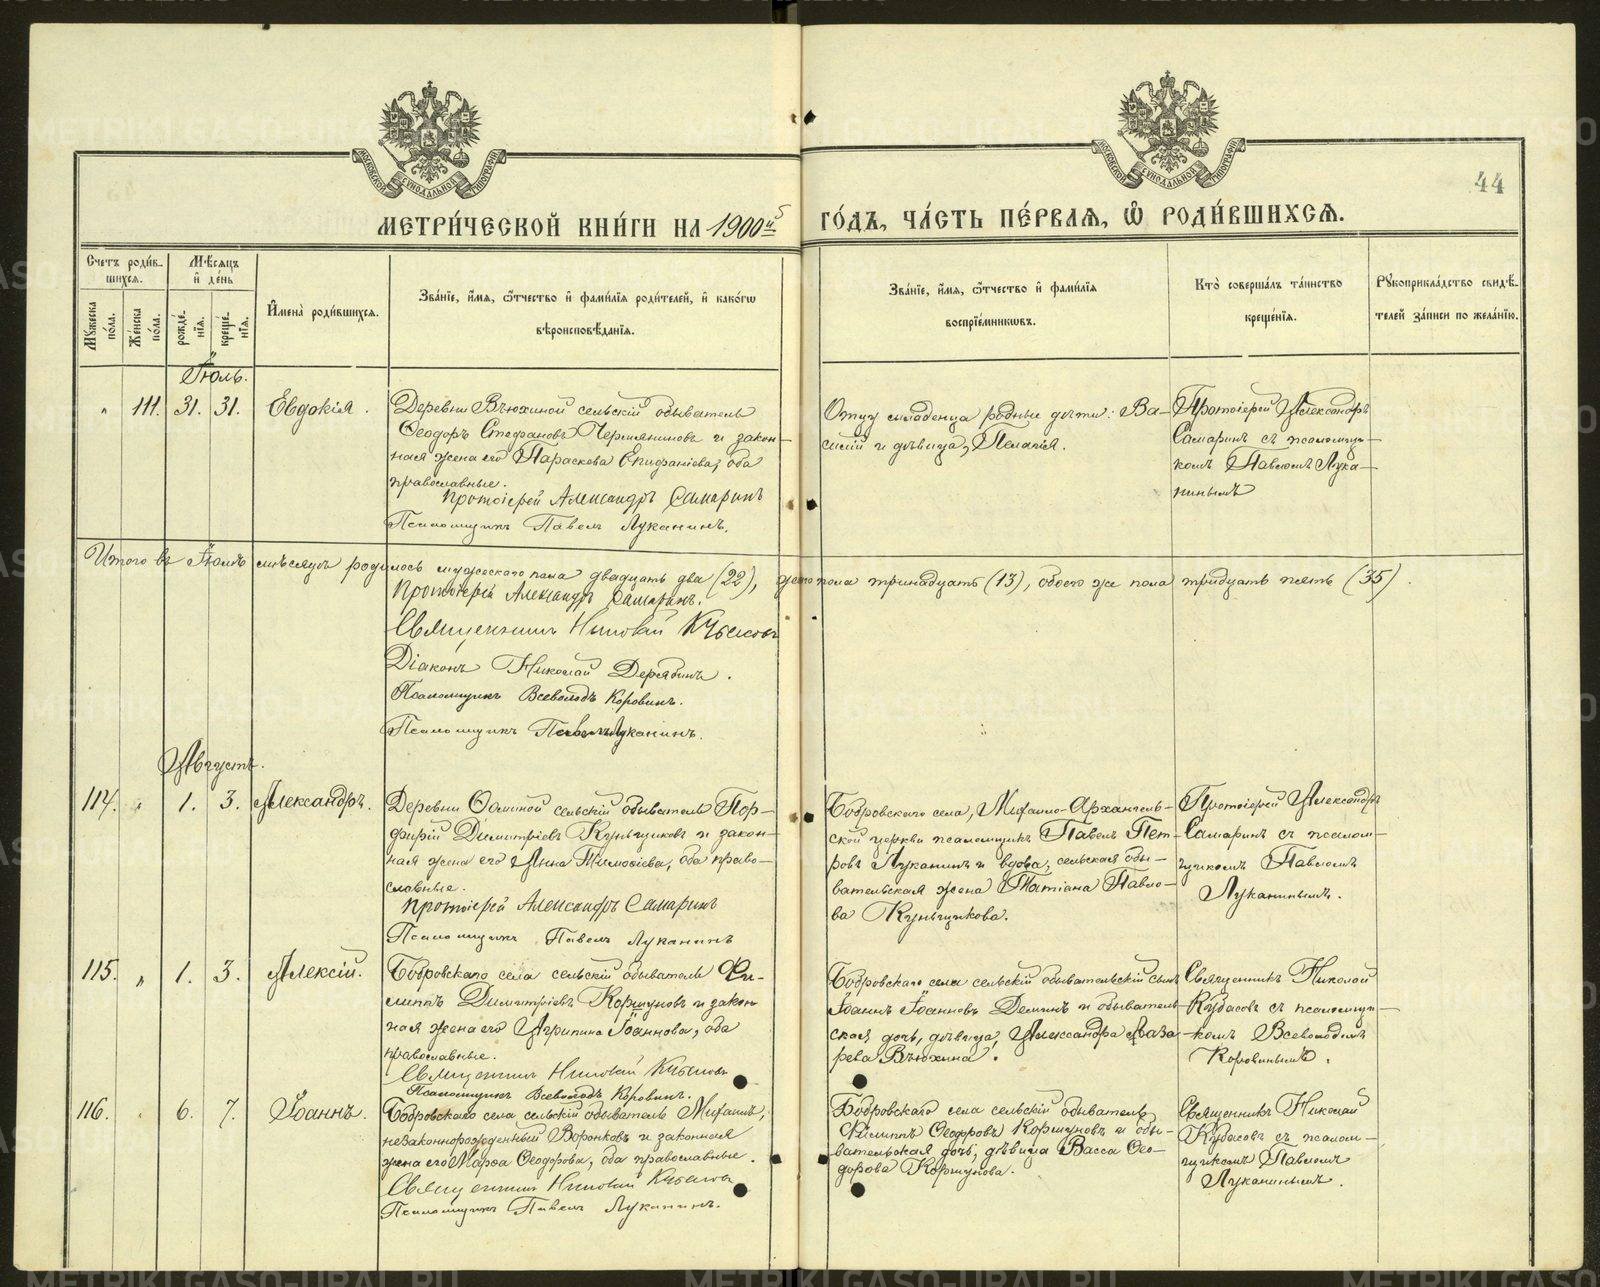 МЕТРИ́ЧЕСКОЙ КНИ́ГИ НА 1900й ГО́ДЪ, ЧА́СТЬ ПЕ́РВАѦ, Ѿ РОДИ́ВШИХСѦ.
44
Счетъ роди́в-
шихся.
Мѣ́сяцъ
и́ де́нь
И҆мена̀ роди́вшихся.
Зва́нїе, и҆́мя, ѻ҆́тчество и҆ фами́лїя роди́телей, и҆ како́гѡ
вѣроисповѣ́данїя.
Зва́нїе, и҆́мя, ѻ҆́тчество и҆ фами́лїя
воспрїе́мникѡвъ.
Кто̀ соверша́лъ та́инство
креще́нїя.
Рꙋкоприкла́дство свидѣ́-
телей за́писи по жела́нїю.
Мꙋ́жеска
по́ла.
Же́нска
по́ла.
рожде́-
нїя.
креще́-
нїя.
Іюль.
" 111. 31. 31. Евдокія.
Деревни Вьюхиной сельскій обыватель
Ѳеодоръ Стефановъ Чермяниновъ и закон-
ная жена его Параскева Епифаніева, оба
православные.
Протоіерей Александръ Самаринъ
Псаломщикъ Павелъ Луканинъ.
Отцу младенца родные дѣти: Ва-
силій и дѣвица, Пелагія.
Протоіерей Александръ
Самаринъ съ псаломщи-
комъ Павломъ Лука-
нинымъ
Итого въ Іюлѣ мѣсяцѣ родилось мужескаго пола двадцать два (22), женс. пола тринадцать (13), обоего же пола тридцать пять (35).
Протоіерей Александръ Самаринъ.
Священникъ Николай Кубасовъ
Діаконъ Николай Дерябинъ.
Псаломщикъ Всеволодъ Коровинъ.
Псаломщикъ Павелъ Луканинъ.
Августъ.
114. " 1. 3. Александръ.
Деревни сельскій обыватель Пор-
фирій Димитріевъ Куньщиковъ и закон-
ная жена его Анна Тимоѳеева, оба право-
славные.
Протоіерей Александръ Самаринъ
Псаломщикъ Павелъ Луканинъ
Бобровскаго села, Михаило-Архангель-
ской церкви псаломщикъ Павелъ Пет-
ровъ Луканинъ и вдова, сельская обы-
вательская жена Татіана Павло-
ва Куньщикова.
Протоіерей Александръ
Самаринъ съ псалом-
щикомъ Павломъ
Луканинымъ.
115. " 1. 3. Алексій.
Бобровскаго села сельскій обыватель Фи-
липпъ Димитріевъ Коршуновъ и закон
ная жена его Агрипина Іоаннова, оба
православные.
Священникъ Николай Кубасовъ
Псаломщикъ Всеволодъ Коровинъ.
Бобровскаго села сельскій обывательскій сынъ
Іоаннъ Іоанновъ Деминъ и обыватель
ская дочь, дѣвица, Александра Лаза
рева Вьюхина.
Священникъ Николай
Кубасовъ съ псаломщи-
комъ Всеволодомъ
Коровинымъ.
116. " 6. 7. Іоаннъ.
Бобровскаго села сельскій обыватель Михаилъ,
незаконнорожденный Воронковъ и законная
жена его Марѳа Ѳеодорова, оба православные.
Священникъ Николай Кубасовъ
Псаломщикъ Павелъ Луканинъ.
Бобровскаго села сельскій обыватель
Филиппъ Ѳеодоровъ Коршуновъ и обы-
вательская дочь, дѣвица Васса Ѳео-
дорова Коршунова.
Священникъ Николай
Кубасовъ съ псалом-
щикомъ Павломъ
Луканинымъ.